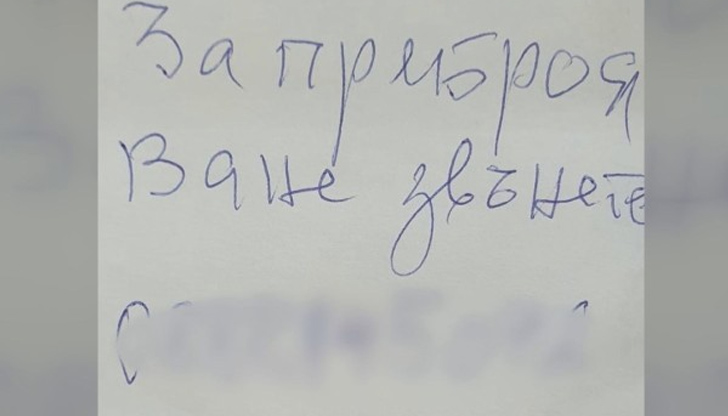 За приброя
Ване звънете